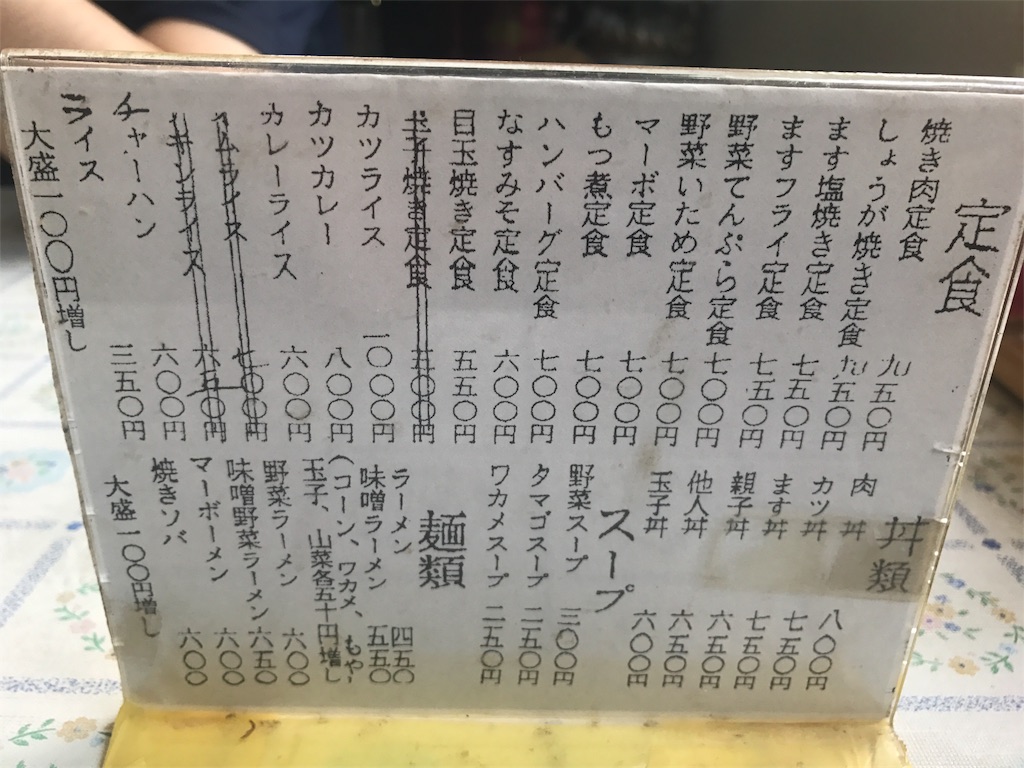 定食
焼き肉定食 九五〇円
しょうが焼き定食 九五〇円
ます塩焼き定食 七五〇円
ますフライ定食 七五〇円
野菜てんぷら定食 七〇〇円
野菜いため定食 七〇〇円
マーボ定食 七〇〇円
もつ煮定食 七〇〇円
ハンバーグ定食 七〇〇円
なすみそ定食 六〇〇円
目玉焼き定食 五五〇円
玉子焼き定食 五〇〇円
カツライス 一〇〇〇円
カツカレー 八〇〇円
カレーライス 六〇〇円
オムライス 七〇〇円
チキンライス 六五〇円
チャーハン 六〇〇円
ライス 三五〇円
大盛一〇〇円増し
丼類
肉丼 八〇〇円
カツ丼 七五〇円
ます丼 七五〇円
親子丼 六五〇円
他人丼 六五〇円
玉子丼 六〇〇円
スープ
野菜スープ 三〇〇円
タマゴスープ 二五〇円
ワカメスープ 二五〇円
麺類
ラーメン 四五〇
味噌ラーメン 五五〇
(コーン、ワカメ、もやし
玉子、山菜各五十円増し
野菜ラーメン 六〇〇
味噌野菜ラーメン 六五〇
マーボーメン 六〇〇
焼きソバ 六〇〇
大盛一〇〇円増し